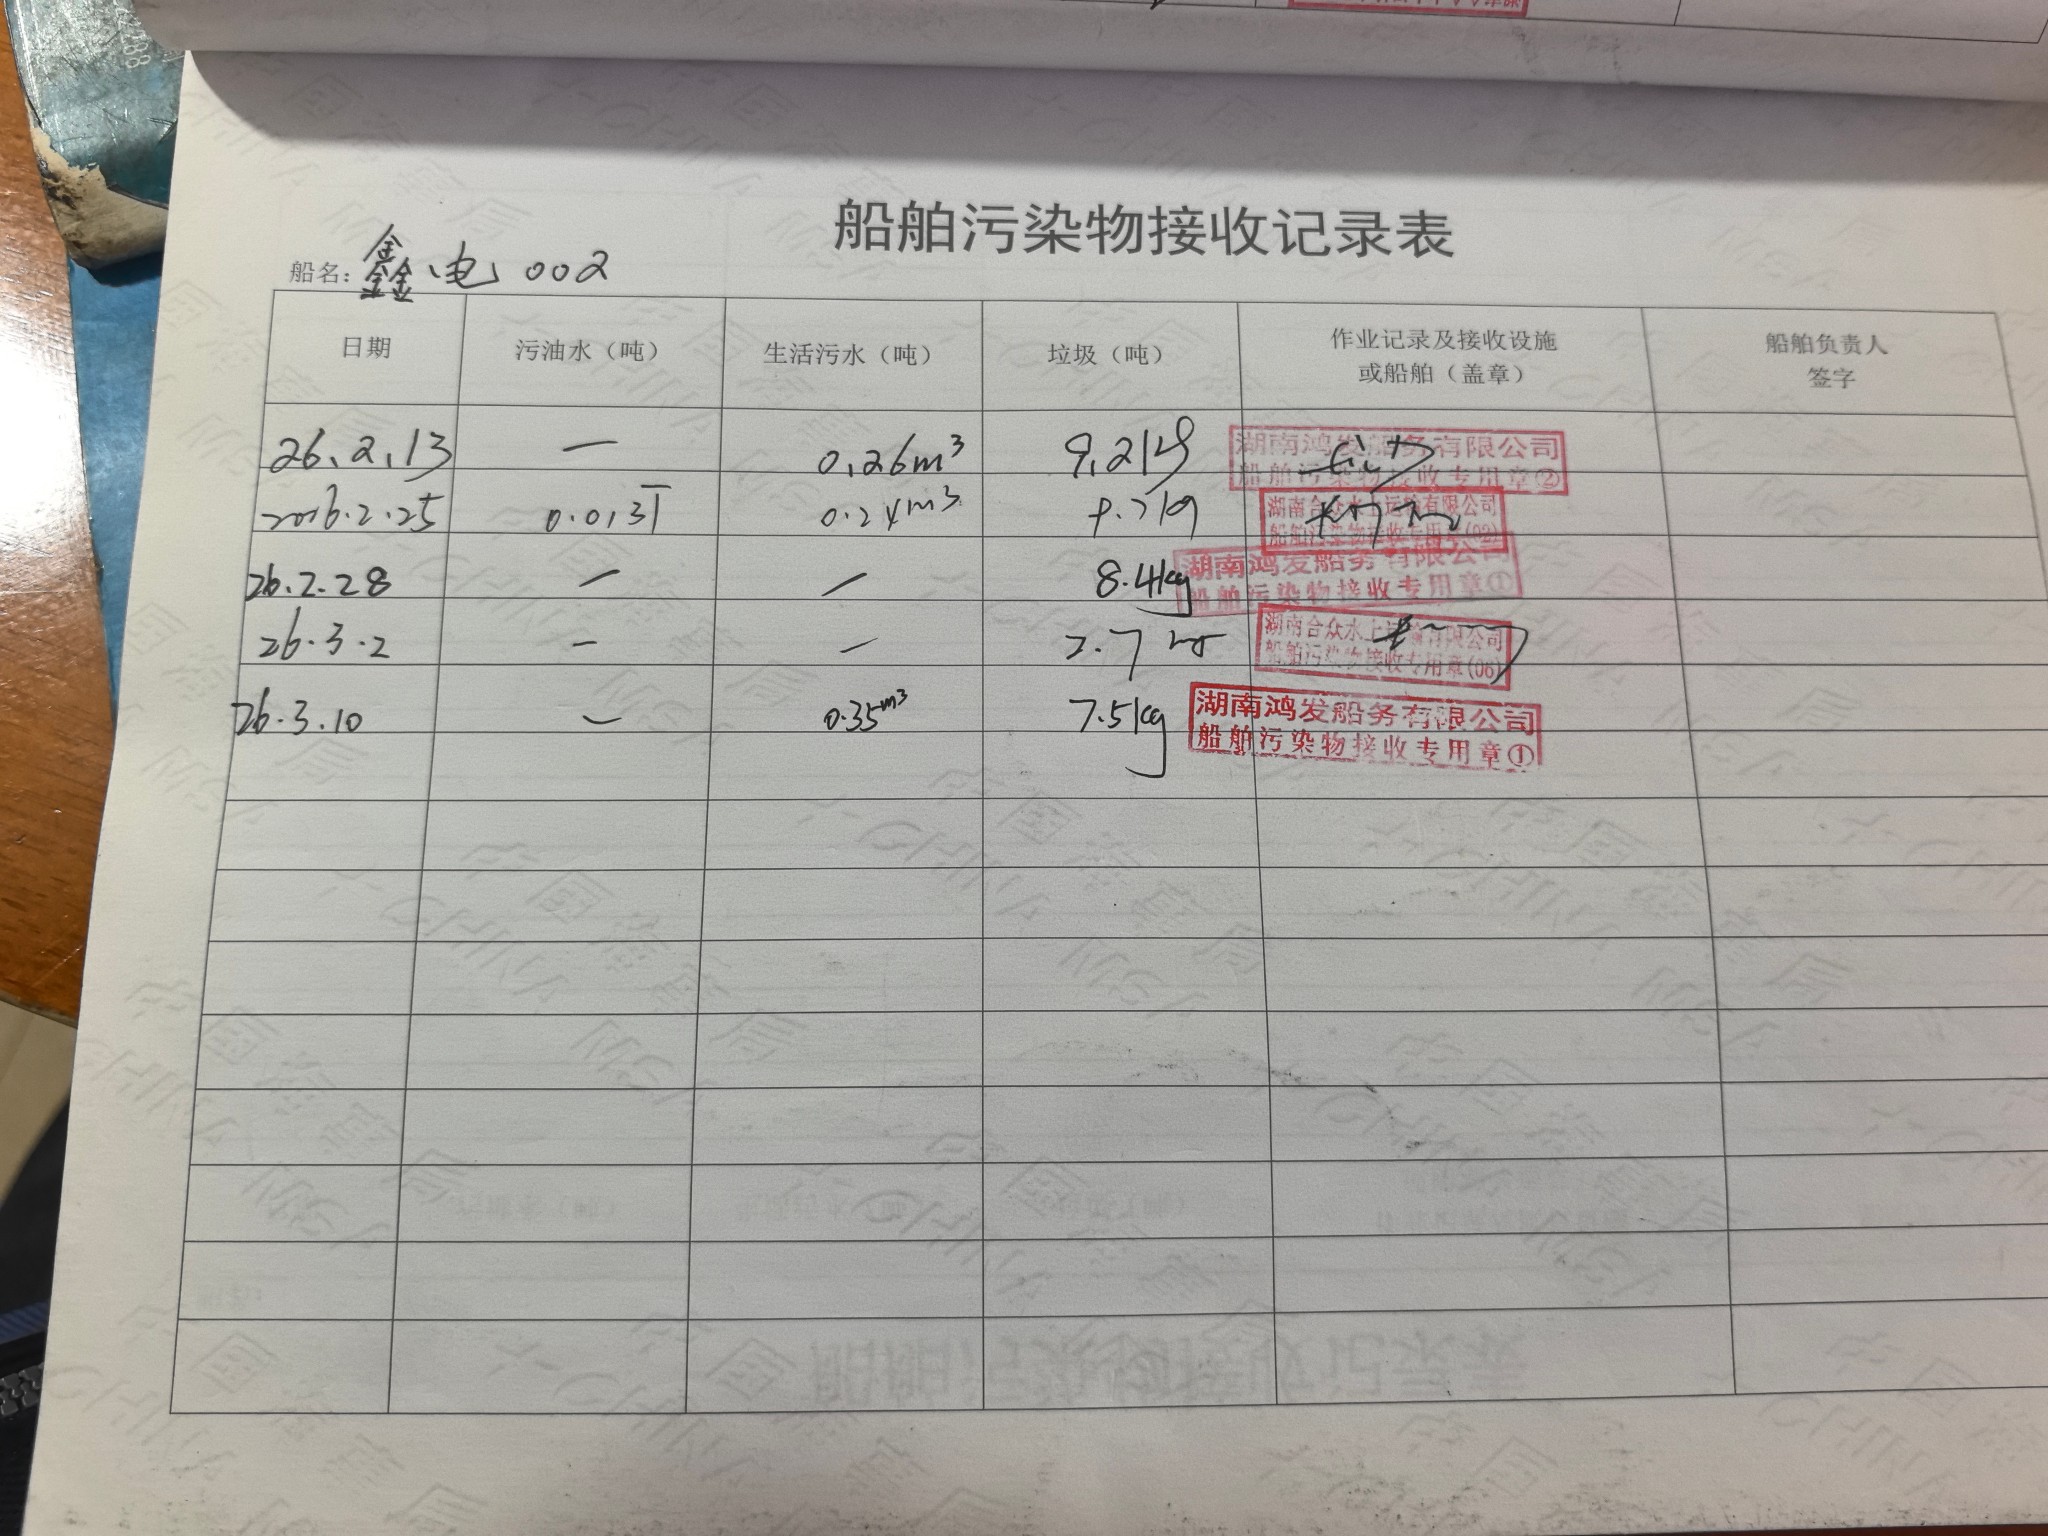 船舶污染物接收记录表
船名：鑫电002
日期 污油水（吨） 生活污水（吨） 垃圾（吨） 作业记录及接收设施或船舶（盖章） 船舶负责人签字
26.2.13 — 0.26m³ 9.2kg 湖南鸿发船务有限公司
船舶污染物接收专用章②
2016.2.25 0.013T 0.24m³ 湖南合众水上运输有限公司
船舶污染物接收专用章(02)
26.2.28 — — 8.4kg 湖南鸿发船务有限公司
船舶污染物接收专用章①
26.3.2 — — 2.7 湖南合众水上运输有限公司
船舶污染物接收专用章(06)
26.3.10 — 0.35m³ 7.5kg 湖南鸿发船务有限公司
船舶污染物接收专用章①